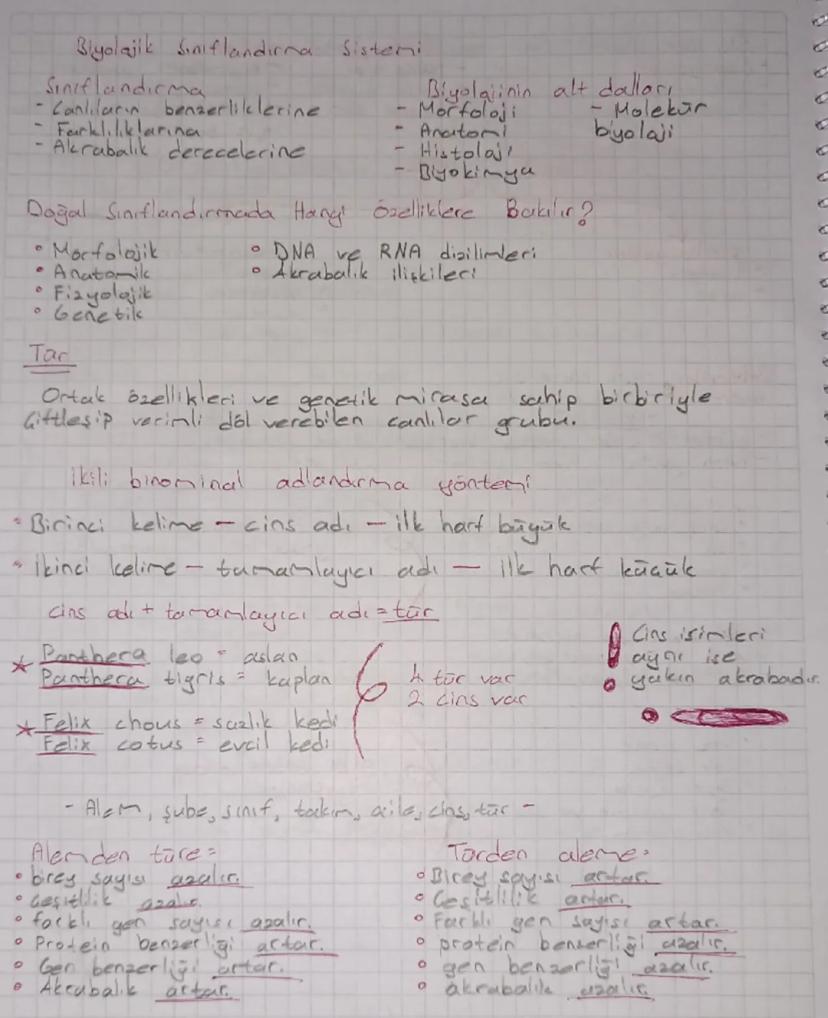 Biyolojik Sınıflandırma Sistemi
Sınıflandırma
- Canlıların benzerliklerine
- Farklılıklarına
- Akrabalık derecelerine
Biyolojinin alt dalları
- Morfoloji
- Anatomi
- Histoloji
- Biyokimya
- Molekür
biyoloji
Doğal Sınıflandırmada Hangi özelliklere Bakılır?
• Morfolojik
• Anatomik
• Fizyolojik
• Genetik
• DNA ve RNA dizilimleri
• Akrabalık ilişkileri
Tür
Ortak özellikleri ve genetik mirasa sahip birbiriyle
Çiftleşip verimli döl verebilen canlılar grubu.
ikili binominal adlandırma yöntemi
• Birinci kelime - cins adı - ilk harf büyük
• ikinci kelime - tamamlayıcı adı - ilk harf küçük
cins adı + tamamlayıcı adı = tür
★ Panthera leo = aslan
Panthera tigris = kaplan
★ Felix chous = sazlık kedi
Felix catus = evcil kedi
4 tür var
2 cins var
! Cins isimleri
aynı ise
yakın akrabadır.
- Alem, şube, sınıf, takım, aile, cins, tür -
Alemden türe =
• birey sayısı azalır.
• Çeşitlilik azalır.
• farklı gen sayısı azalır.
• Protein benzerliği artar.
• Gen benzerliği artar.
• Akrabalık artar.
Türden aleme =
• Birey sayısı artar.
• Çeşitlilik artar.
• Farklı gen sayısı artar.
• protein benzerliği azalır.
• gen benzerliği azalır.
• akrabalık azalır.